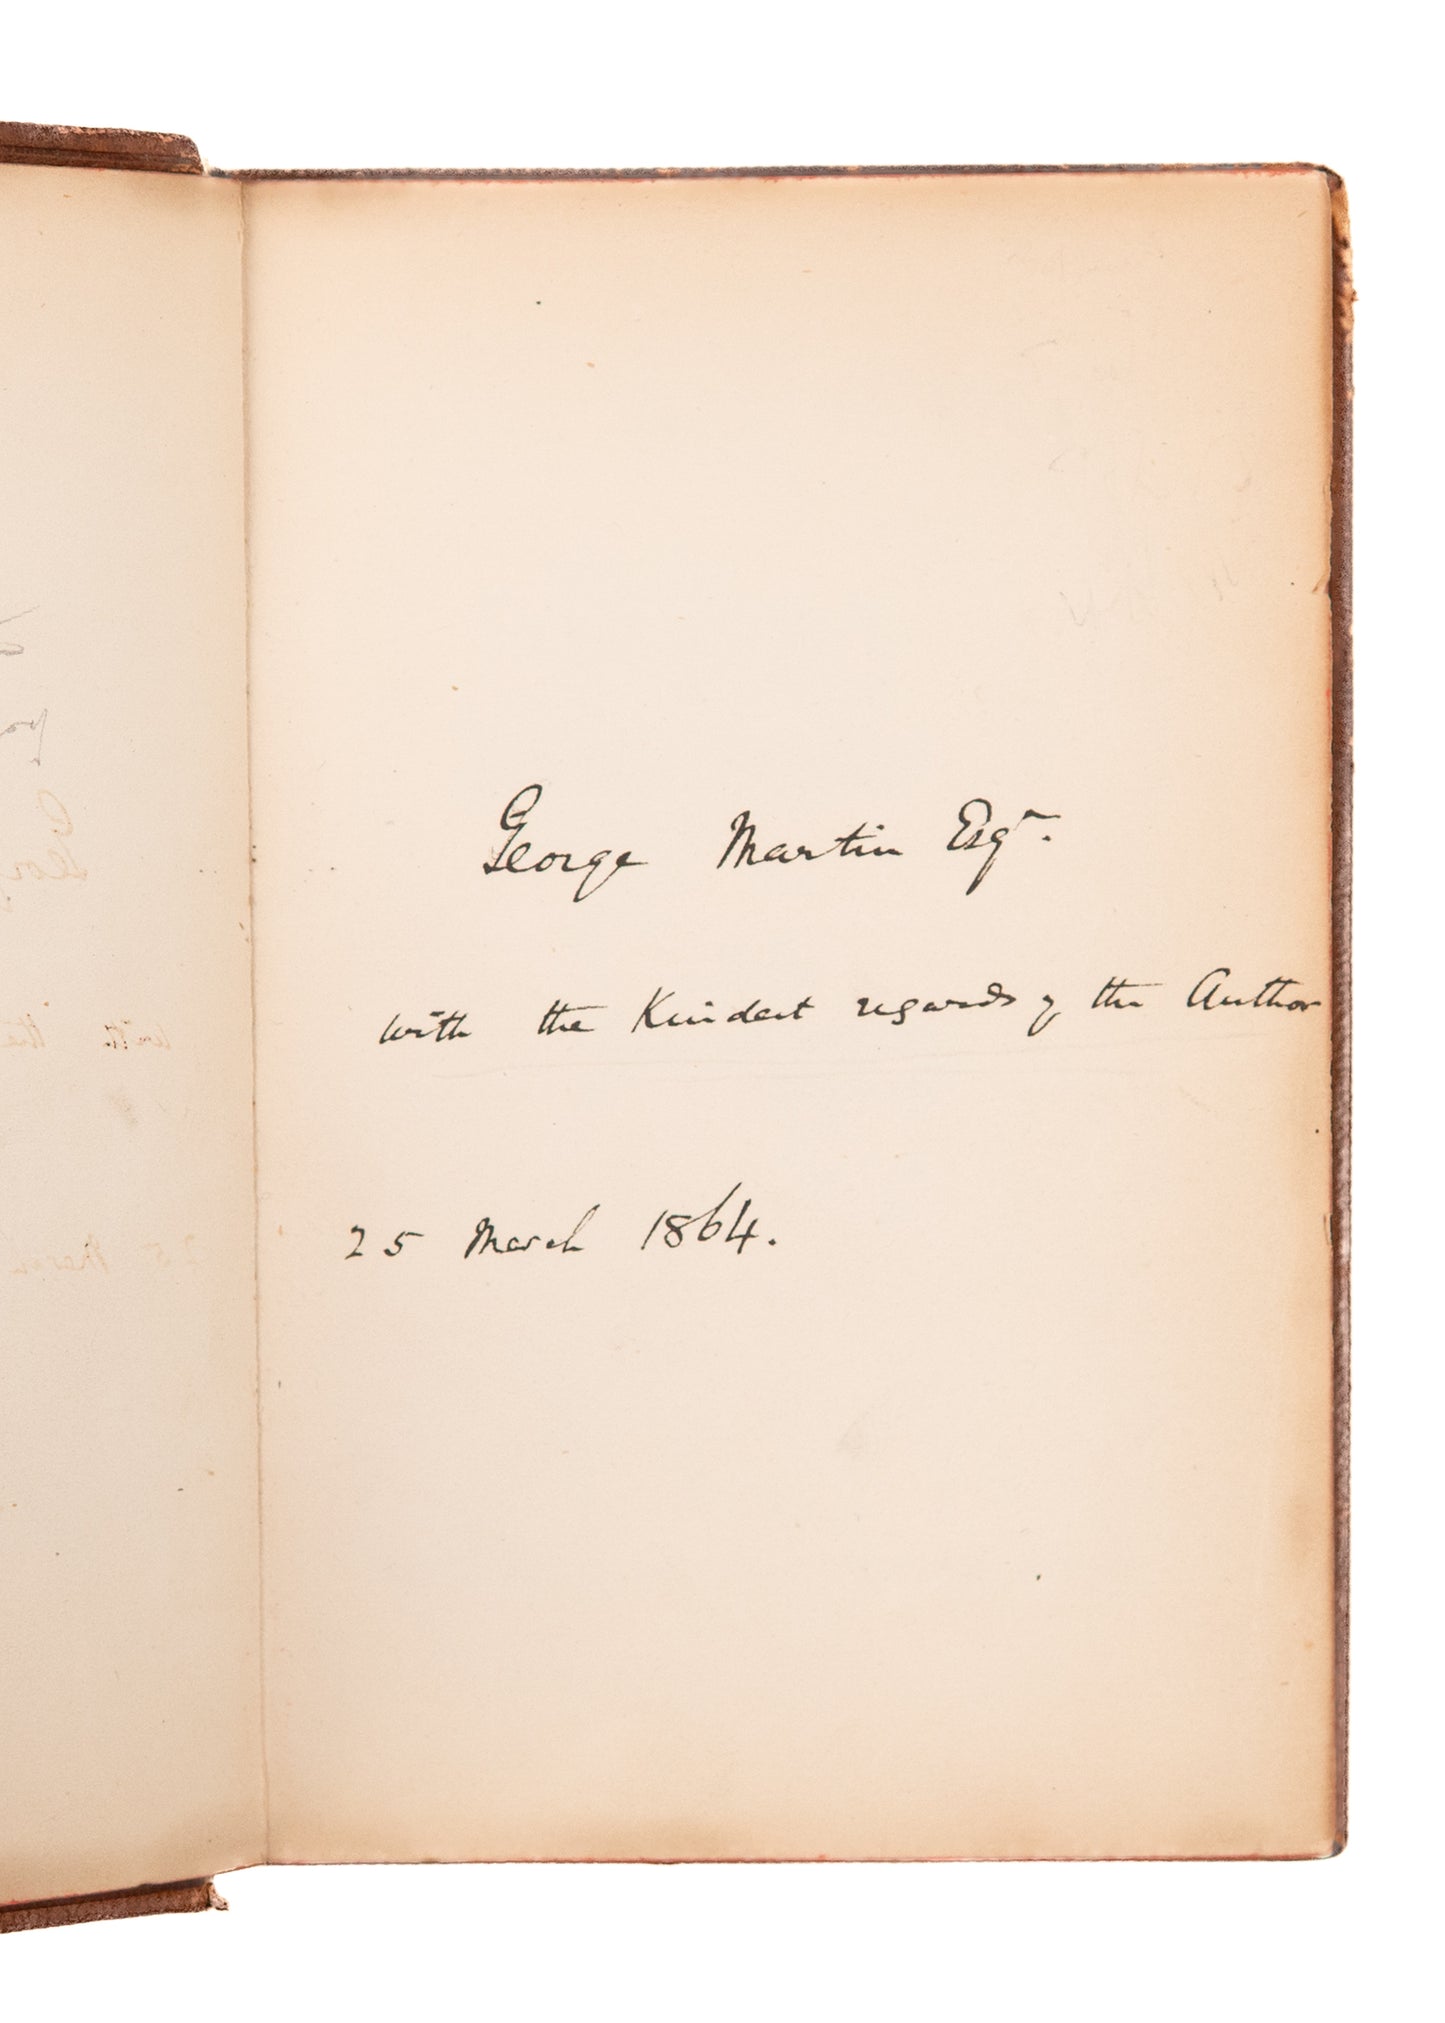 George Martin Esqr.
with the Kindest regards of the Author
25 March 1864.